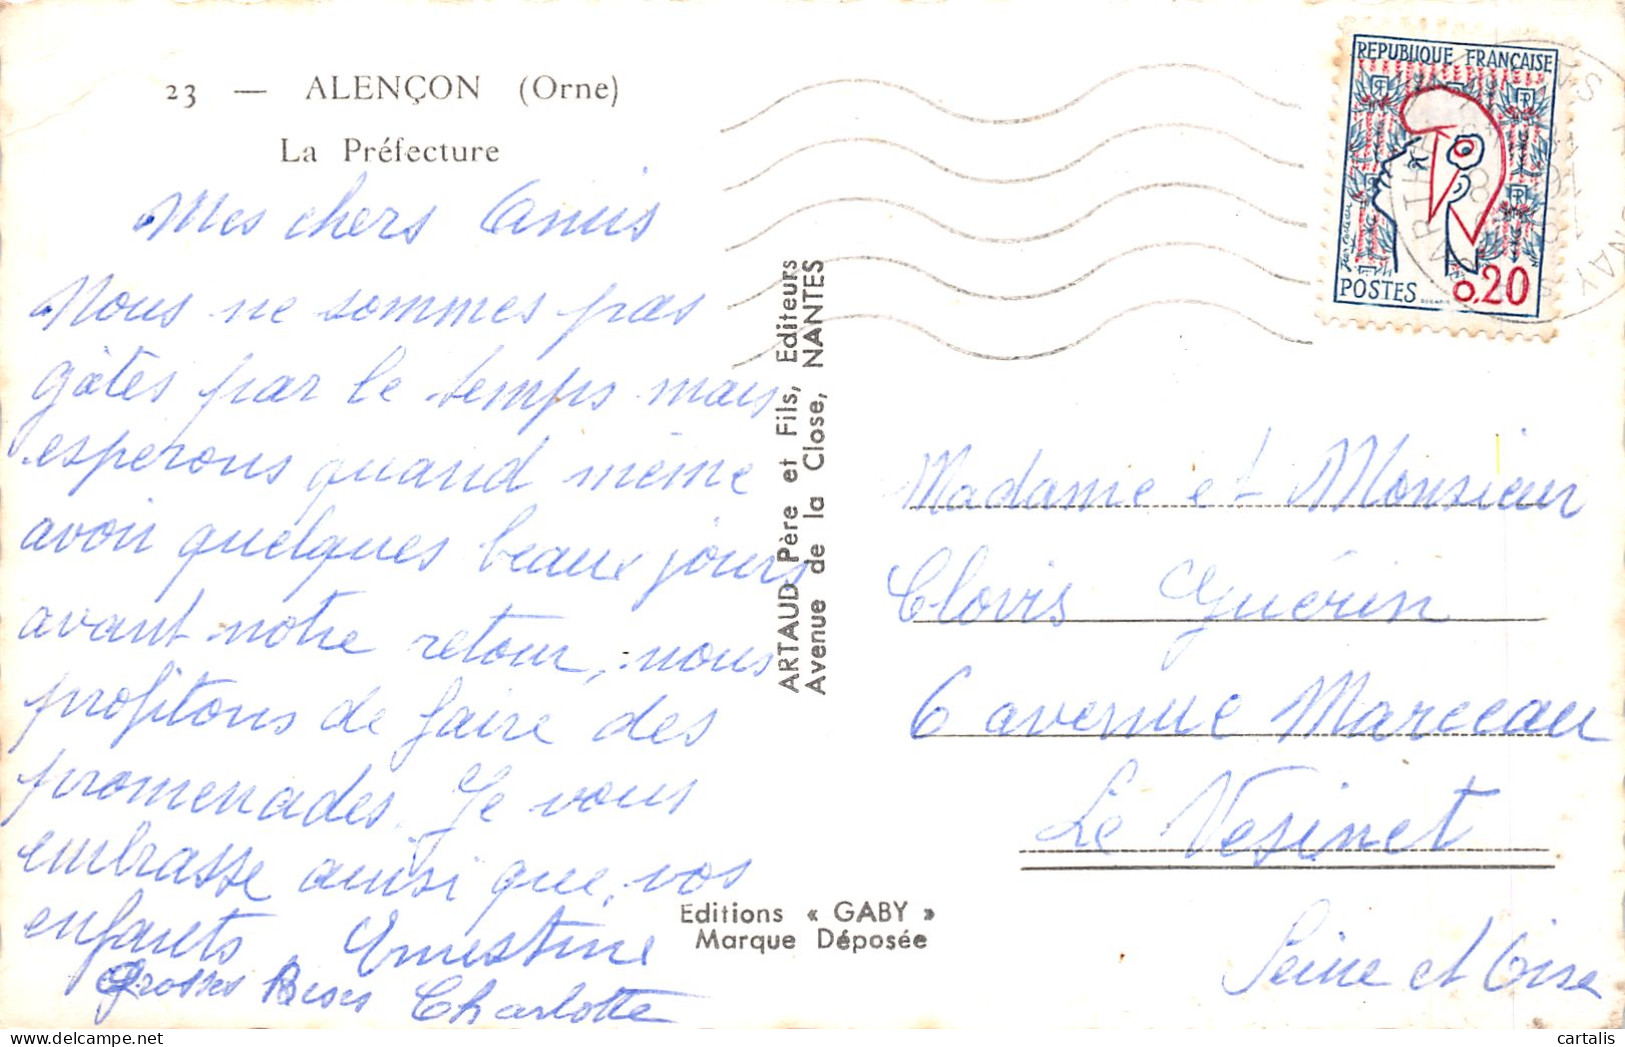 23 — ALENÇON (Orne)
La Préfecture
Mes chers Amis
Nous ne sommes pas
gâtés par le temps mais
esperons quand même
avoir quelques beaux jours
avant notre retour, nous
profitons de faire des
promenades. Je vous
embrasse ainsi que vos
enfants Ernestine
Grosses Bises Charlotte
ARTAUD Père et Fils, Editeurs
Avenue de la Close, NANTES
Editions « GABY »
Marque Déposée
REPUBLIQUE FRANÇAISE
POSTES 0,20
Madame et Monsieur
Clovis Guérin
6 avenue Marceau
Le Vesinet
Seine et Oise
cartalis